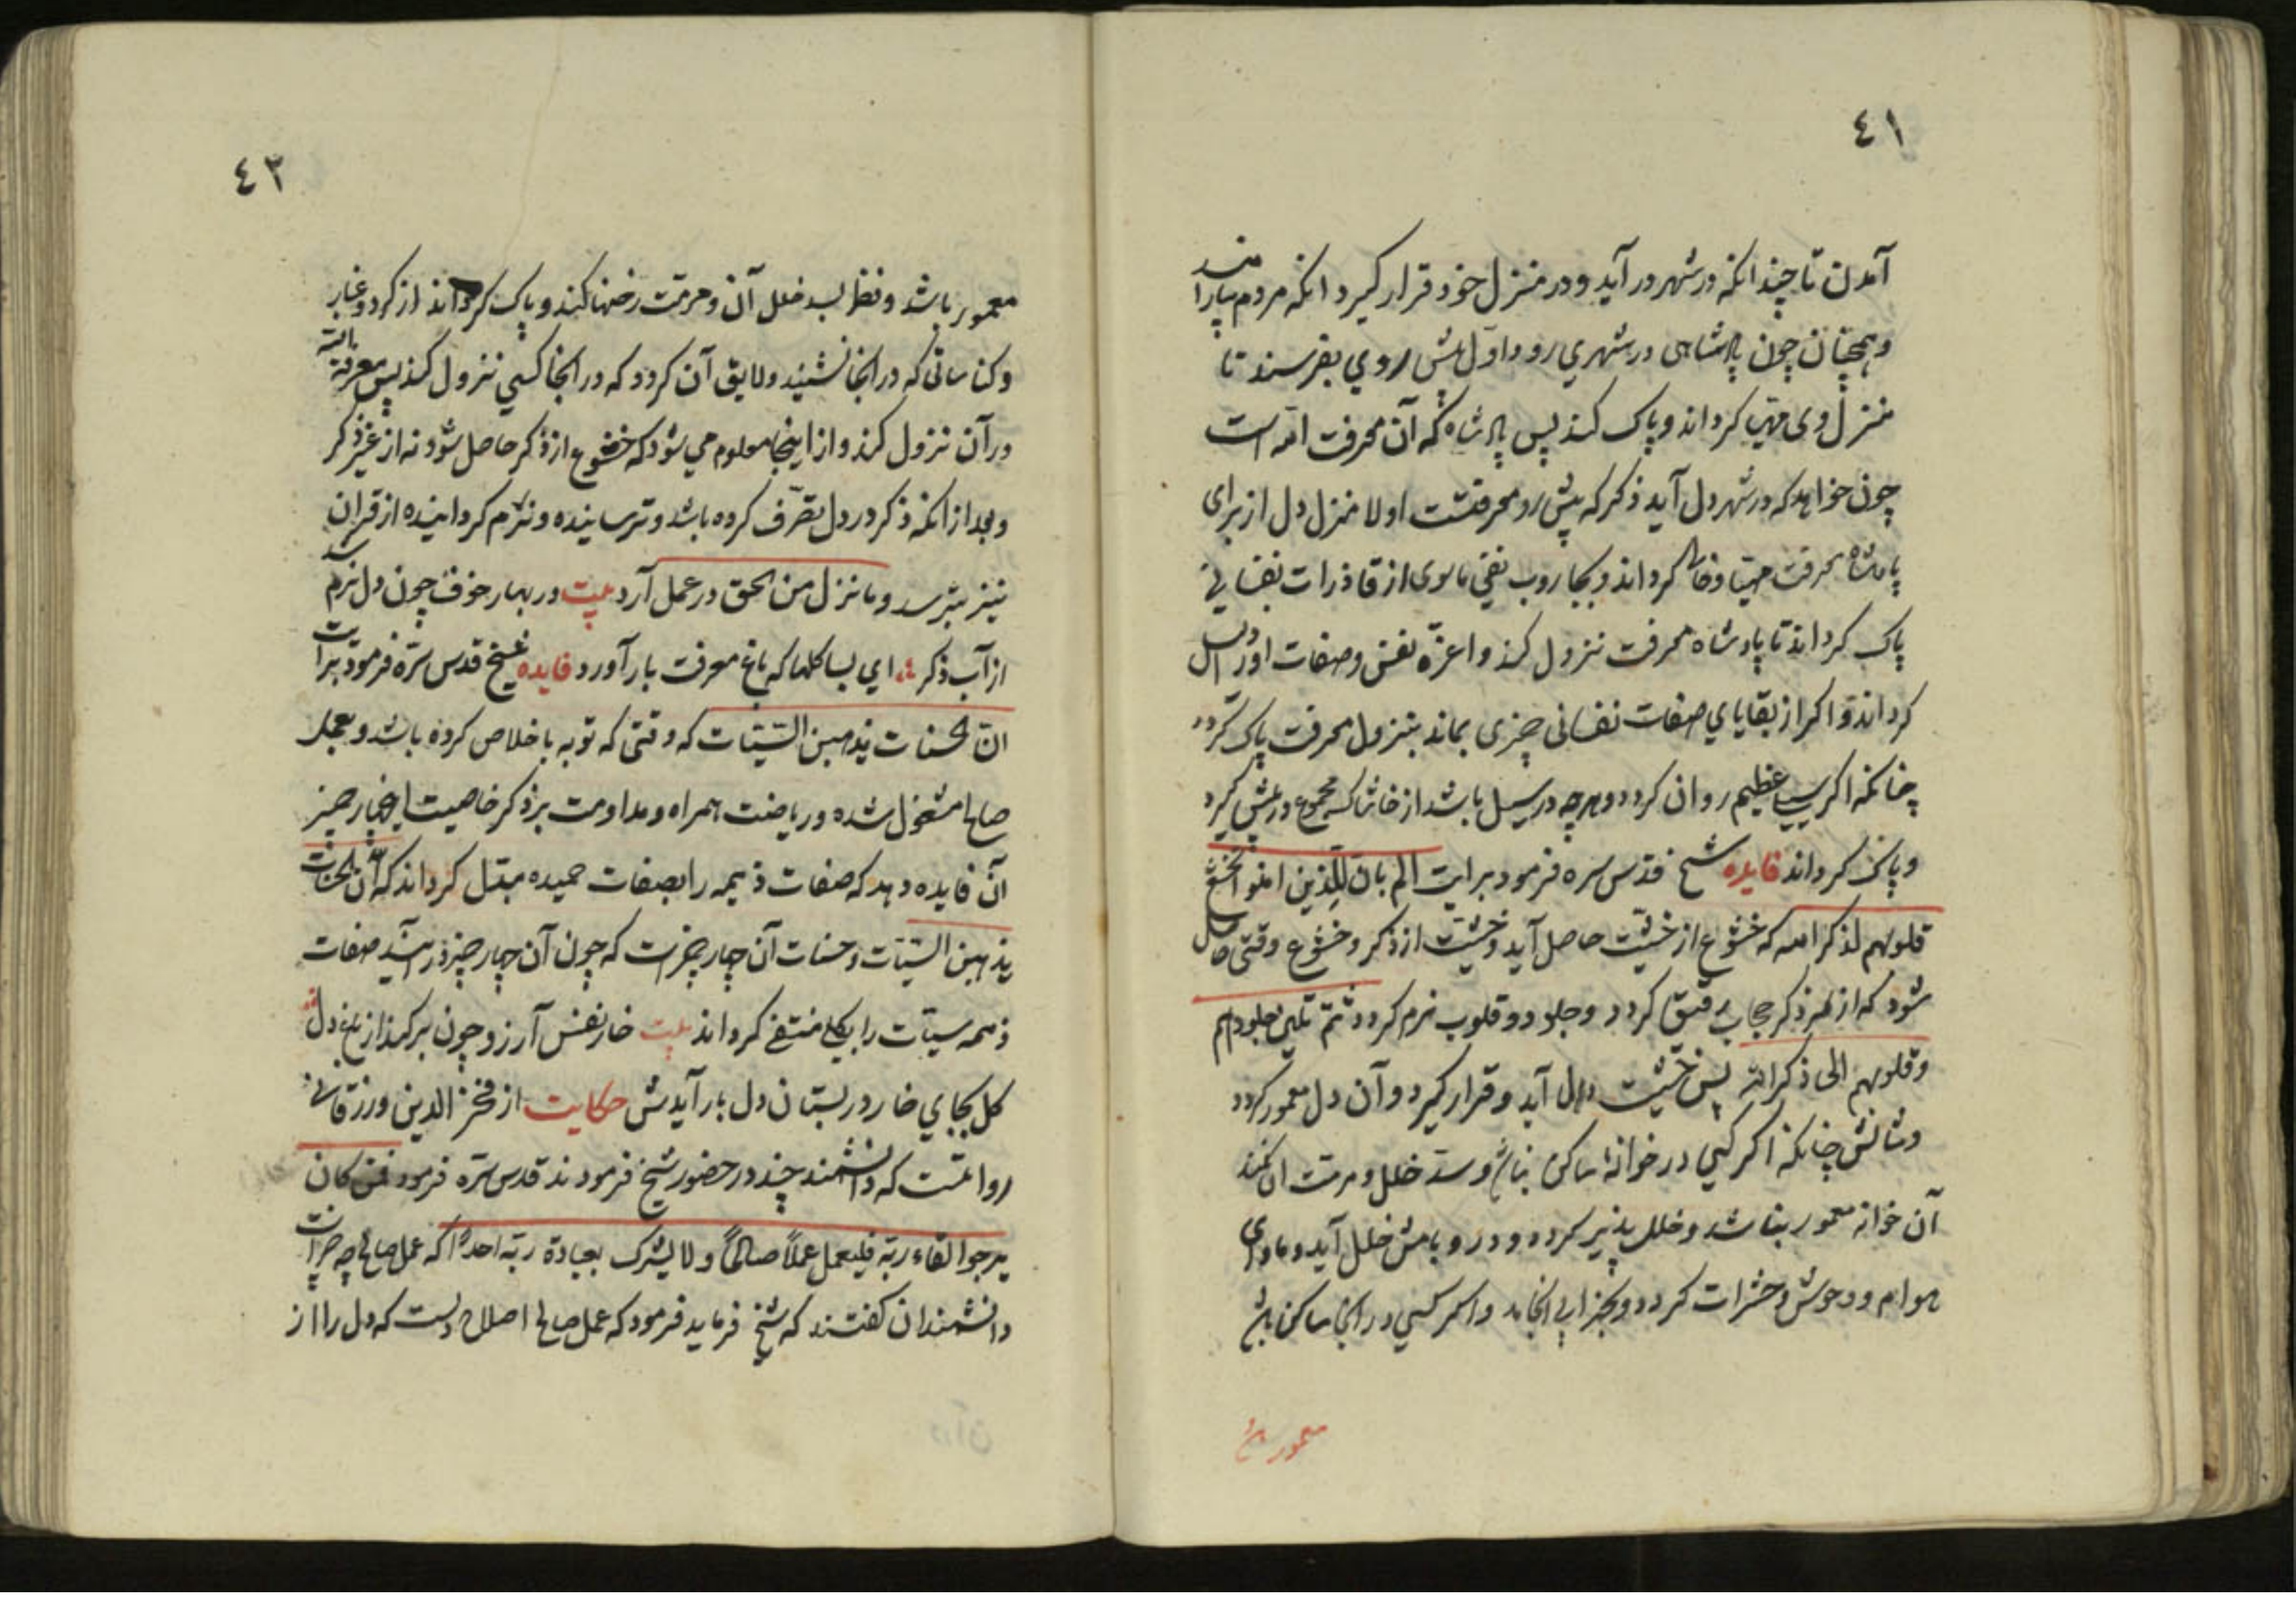 ٤١
آمدن تا چندانکه در شهر در آید و در منزل خود قرار کیرد انکه مردم بیارامند
و همچنان چون پادشاهی در شهری رود اول پیش روی بفرستد تا
منزل وی مهیا کرداند و پاک کند پس پادشاه که آن معرفت الله است
چون خواهد که در شهر دل آید ذکر که پیش رو معرفتست اولا منزل دل از برای
پادشاه معرفت مهیا و خالی کرداند و بجاروب نفی ماسوی از قاذورات نفسانی
پاک کرداند تا پادشاه معرفت نزول کند و اعزّه نفس و صفات او ذلیل
کرداند و اکر از بقایای صفات نفسانی چیزی بماند بنزول معرفت پاک کردد
چنانکه اکر سیل عظیم روان کردد و هرچه در سیل باشد از خاشاک مجموع در پیش کیرد
و پاک کرداند فایده شیخ قدس سره فرمود بر آیت الم یان للذین امنوا ان تخشع
قلوبهم لذکر الله که خشوع از خشیّت حاصل آید و خشیّت از ذکر و خشوع وقتی حاصل
شود که از ذکر حجاب رقیق کردد و جلود و قلوب نرم کردد ثمّ تلین جلودهم
و قلوبهم الی ذکر الله پس خشیّت در دل آید و قرار کیرد و آن دل معمور کردد
و مثالش چنانکه اکر کسی در خوانهٔ ساکن نباشد و سدّ خلل و مرمّت ان نکند
آن خوانه معمور نباشد و خلل پذیر کردد و در و بامش خلل آید و ماوای
هوام و وحوش و حشرات کردد و بخرابی انجامد و اکر کسی در ان ساکن باشد
معمور باشد
٤٢
معمور باشد و نظر بسد خلل آن و مرمّت رخنها کند و پاک کرداند از کرد و غبار
و کناساتی که در انجا نشیند و لایق آن کردد که در انجا کسی نزول کند پس معرفة الله
در آن نزول کند و از اینجا معلوم می شود که خشوع از ذکر حاصل شود نه از غیر ذکر
و بعد از انکه ذکر در دل تصرّف کرده باشد و ترسانیده و نرم کردانیده از قران
نیز بترسد و ما نزل من الحق در عمل آرد بیت در بهار خوف چون دل نرم شد
از آب ذکر ؞ ای بسا کلها که باغ معرفت بار آورد فایده شیخ قدس سرّه فرمود بر آیت
انّ الحسنات یذهبن السّیّئات که وقتی که توبه باخلاص کرده باشد و بعمل
صالح مشغول شده و ریاضت همراه و مداومت بر ذکر خاصیت این چهار چیز
آن فایده دهد که صفات ذمیمه را بصفات حمیده مبدّل کرداند که انّ الحسنات
یذهبن السّیّئات و حسنات آن چهار چیزست که چون آن چهار چیز در آید صفات
ذمیمه سیّآت را بکلی منتفی کرداند بیت خار نفس آرزو چون برکند از باغ دل
کل بجای خار در بستان دل بار آیدش حکایت از فخر الدین ورزقانی
روایتست که دانشمند چند در حضور شیخ فرمودند قدس سرّه فرمود فمن کان
یرجوا لقاء ربّه فلیعمل عملاً صالحاً و لا یشرک بعبادة ربّه احداً که عمل صالح چه چیز است
دانشمندان کفتند که شیخ فرماید فرمود که عمل صالح اصلاح دلست که دل را از